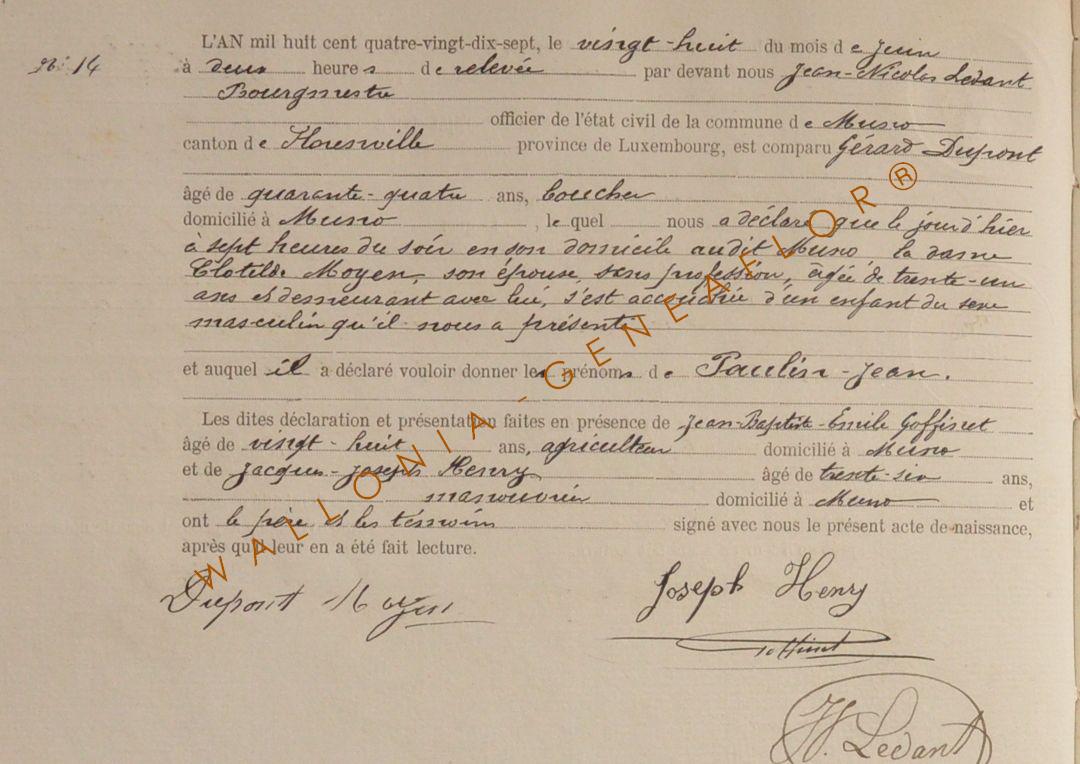 L'AN mil huit cent quatre-vingt-dix-sept, le vingt-huit du mois de Juin
N° 14 à deux heures de relevée par devant nous Jean-Nicolas Ledant
Bourgmestre
officier de l'état civil de la commune de Muno
canton de Florenville province de Luxembourg, est comparu Gérard Dupont
âgé de quarante-quatre ans, boucher
domicilié à Muno, lequel nous a déclaré que le jour d'hier
à sept heures du soir en son domicile audit Muno la dame
Clotilde Moyen, son épouse, sans profession, âgée de trente-un
ans et demeurant avec lui, s'est accouchée d'un enfant du sexe
masculin qu'il nous a présenté
et auquel il a déclaré vouloir donner les prénoms de Paulin-Jean.
Les dites déclaration et présentation faites en présence de Jean-Baptiste-Emile Goffinet
âgé de vingt-huit ans, agriculteur domicilié à Muno
et de Jacques-Joseph Henry âgé de trente-six ans,
manouvrier domicilié à Muno et
ont le père et les témoins signé avec nous le présent acte de naissance,
après qu'il leur en a été fait lecture.
Dupont Moyen
Joseph Henry
Goffinet
N. Ledant
WALLONIA-GENEAFLOR®